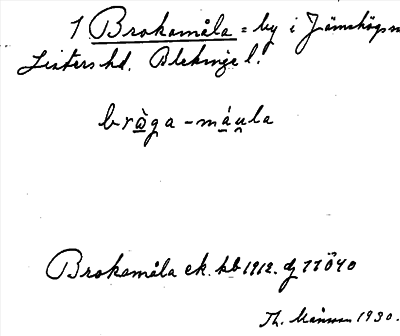 1 Brokamåla = by i Jämshögs n
Listers hd. Blekinge l.
bràga-máula
Brokamåla ek. kb 1912.
Th. 1930.